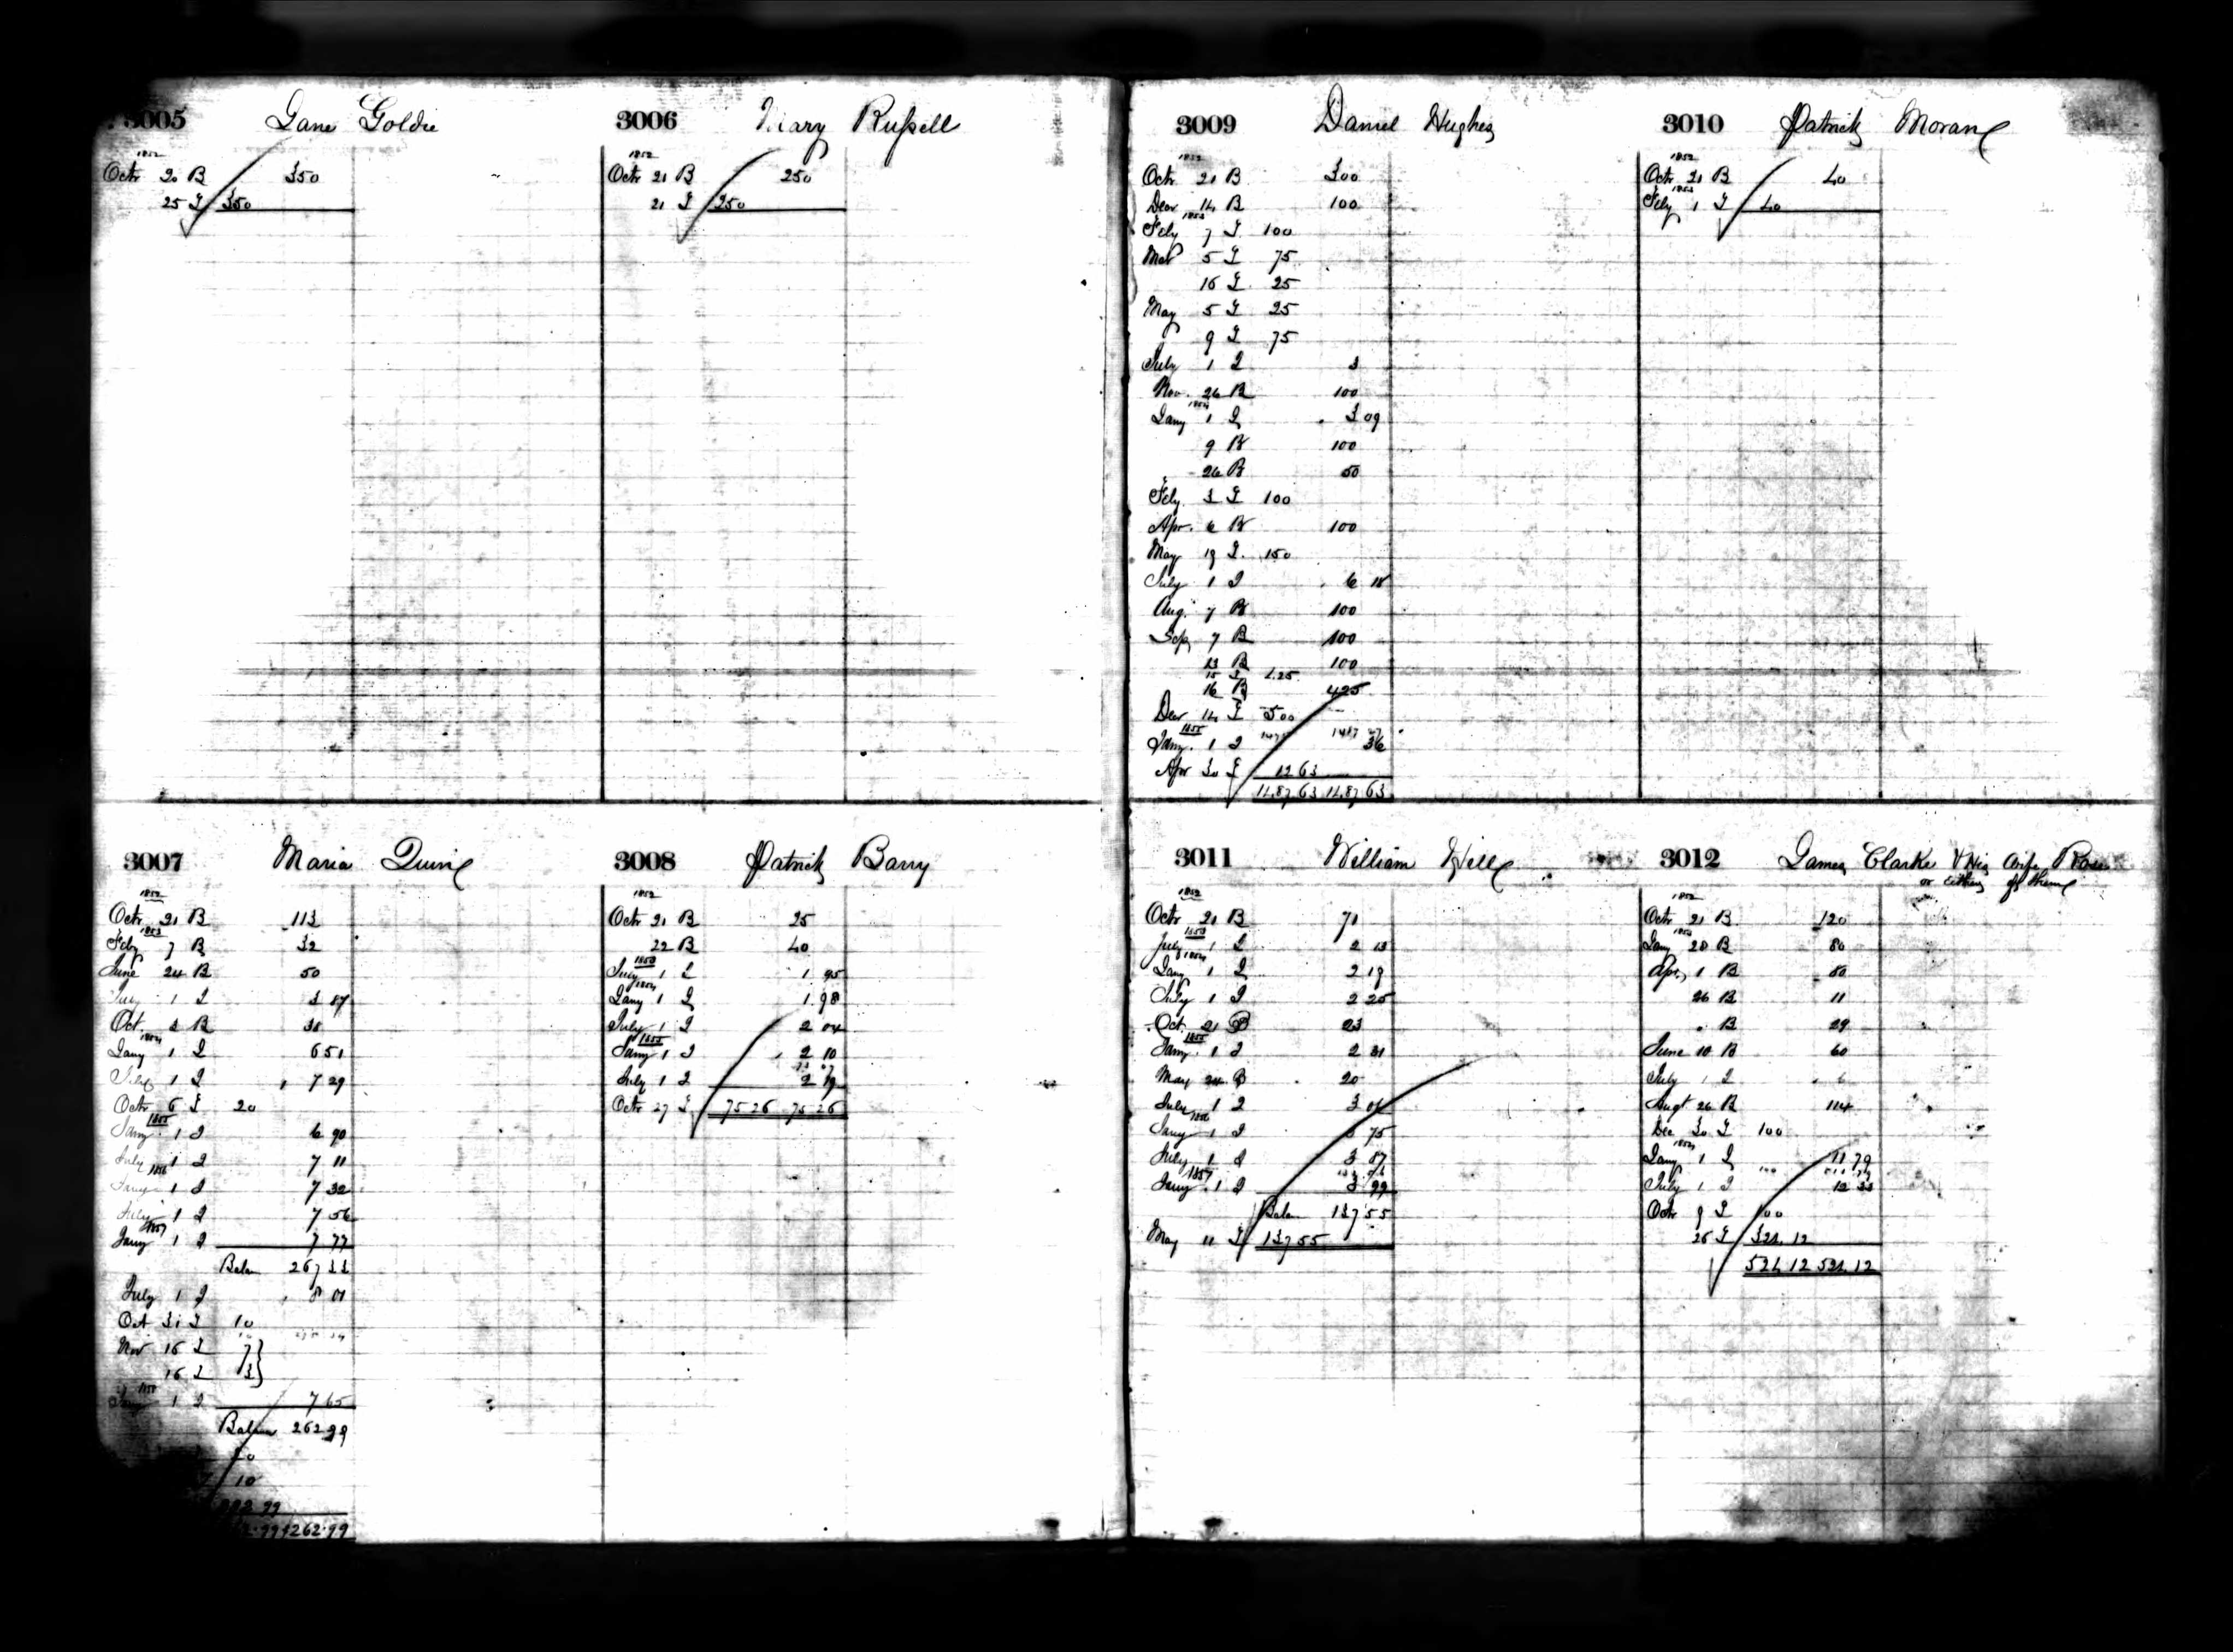 3005 Jane Goldie
1852
Octr 20 B 350
25 D 350
3006 Mary Russell
1852
Octr 21 B 250
21 D 250
3007 Maria Quinn
1852
Octr 21 B 113
1853
Feby 7 B 32
June 24 B 50
July 1 I 3 87
Oct. 3 B
1854
Jany 1 I 6 51
July 1 I 7 29
Octr 6 D 20
1855
Jany 1 I 6 90
July 1 I 7 11
1856
Jany 1 I 7 32
July 1 I 7 56
1857
Jany 1 I 7 77
Balan 267 33
July 1 I 8 01
Oct 31 D 10
Nov 16 D 7
16 D 3
Jany 1 I 7 65
Balan 262 99
10
262.99
3008 Patrick Barry
1852
Octr 21 B 25
22 B 40
1853
July 1 I 1 95
1854
Jany 1 I 1 98
July 1 I 2 04
1855
Jany 1 I 2 10
July 1 I 2 19
Octr 27 D 75 26 75 26
3009 Daniel Hughes
1852
Octr 21 B 300
Decr 14 B 100
1853
Feby 7 D 100
Mar 5 D 75
16 D 25
May 5 D 25
9 D 75
July 1 I 3
Nov. 26 B 100
1854
Jany 1 I 3 09
9 B 100
26 B 50
Feby 3 D 100
Apr. 6 B 100
May 19 D 150
July 1 I 6 18
Aug. 7 B 100
Sep 7 B 100
13 B 100
15 D 425
16 B 425
Decr 14 D 500
1855
Jany 1 I 36
Apr 30 D 12 63
1487 63 1487 63
3010 Patrick Moran
1852
Octr 21 B 40
1853
Feby 1 D 40
3011 William Hill
1852
Octr 21 B 71
1853
July 1 I 2 13
1854
Jany 1 I 2 19
July 1 I 2 25
Oct 21 B 23
1855
Jany 1 I 2 31
May 24 B 20
July 1 I 3 06
1856
Jany 1 I 3 75
July 1 I 3 87
1857
Jany 1 I 3 99
Balan 137 55
May 11 D 137 55
3012 James Clarke & His Wife Rose
or either of them
1852
Octr 21 B 120
1853
Jany 28 B 80
Apr. 1 B 80
26 B 11
" B 29
June 10 B 60
July 1 I 6
Augt 26 B 114
Dec 30 D 100
1854
Jany 1 I 11 79
July 1 I 12 33
Octr 9 D 100
26 D 324 12
524 12 524 12